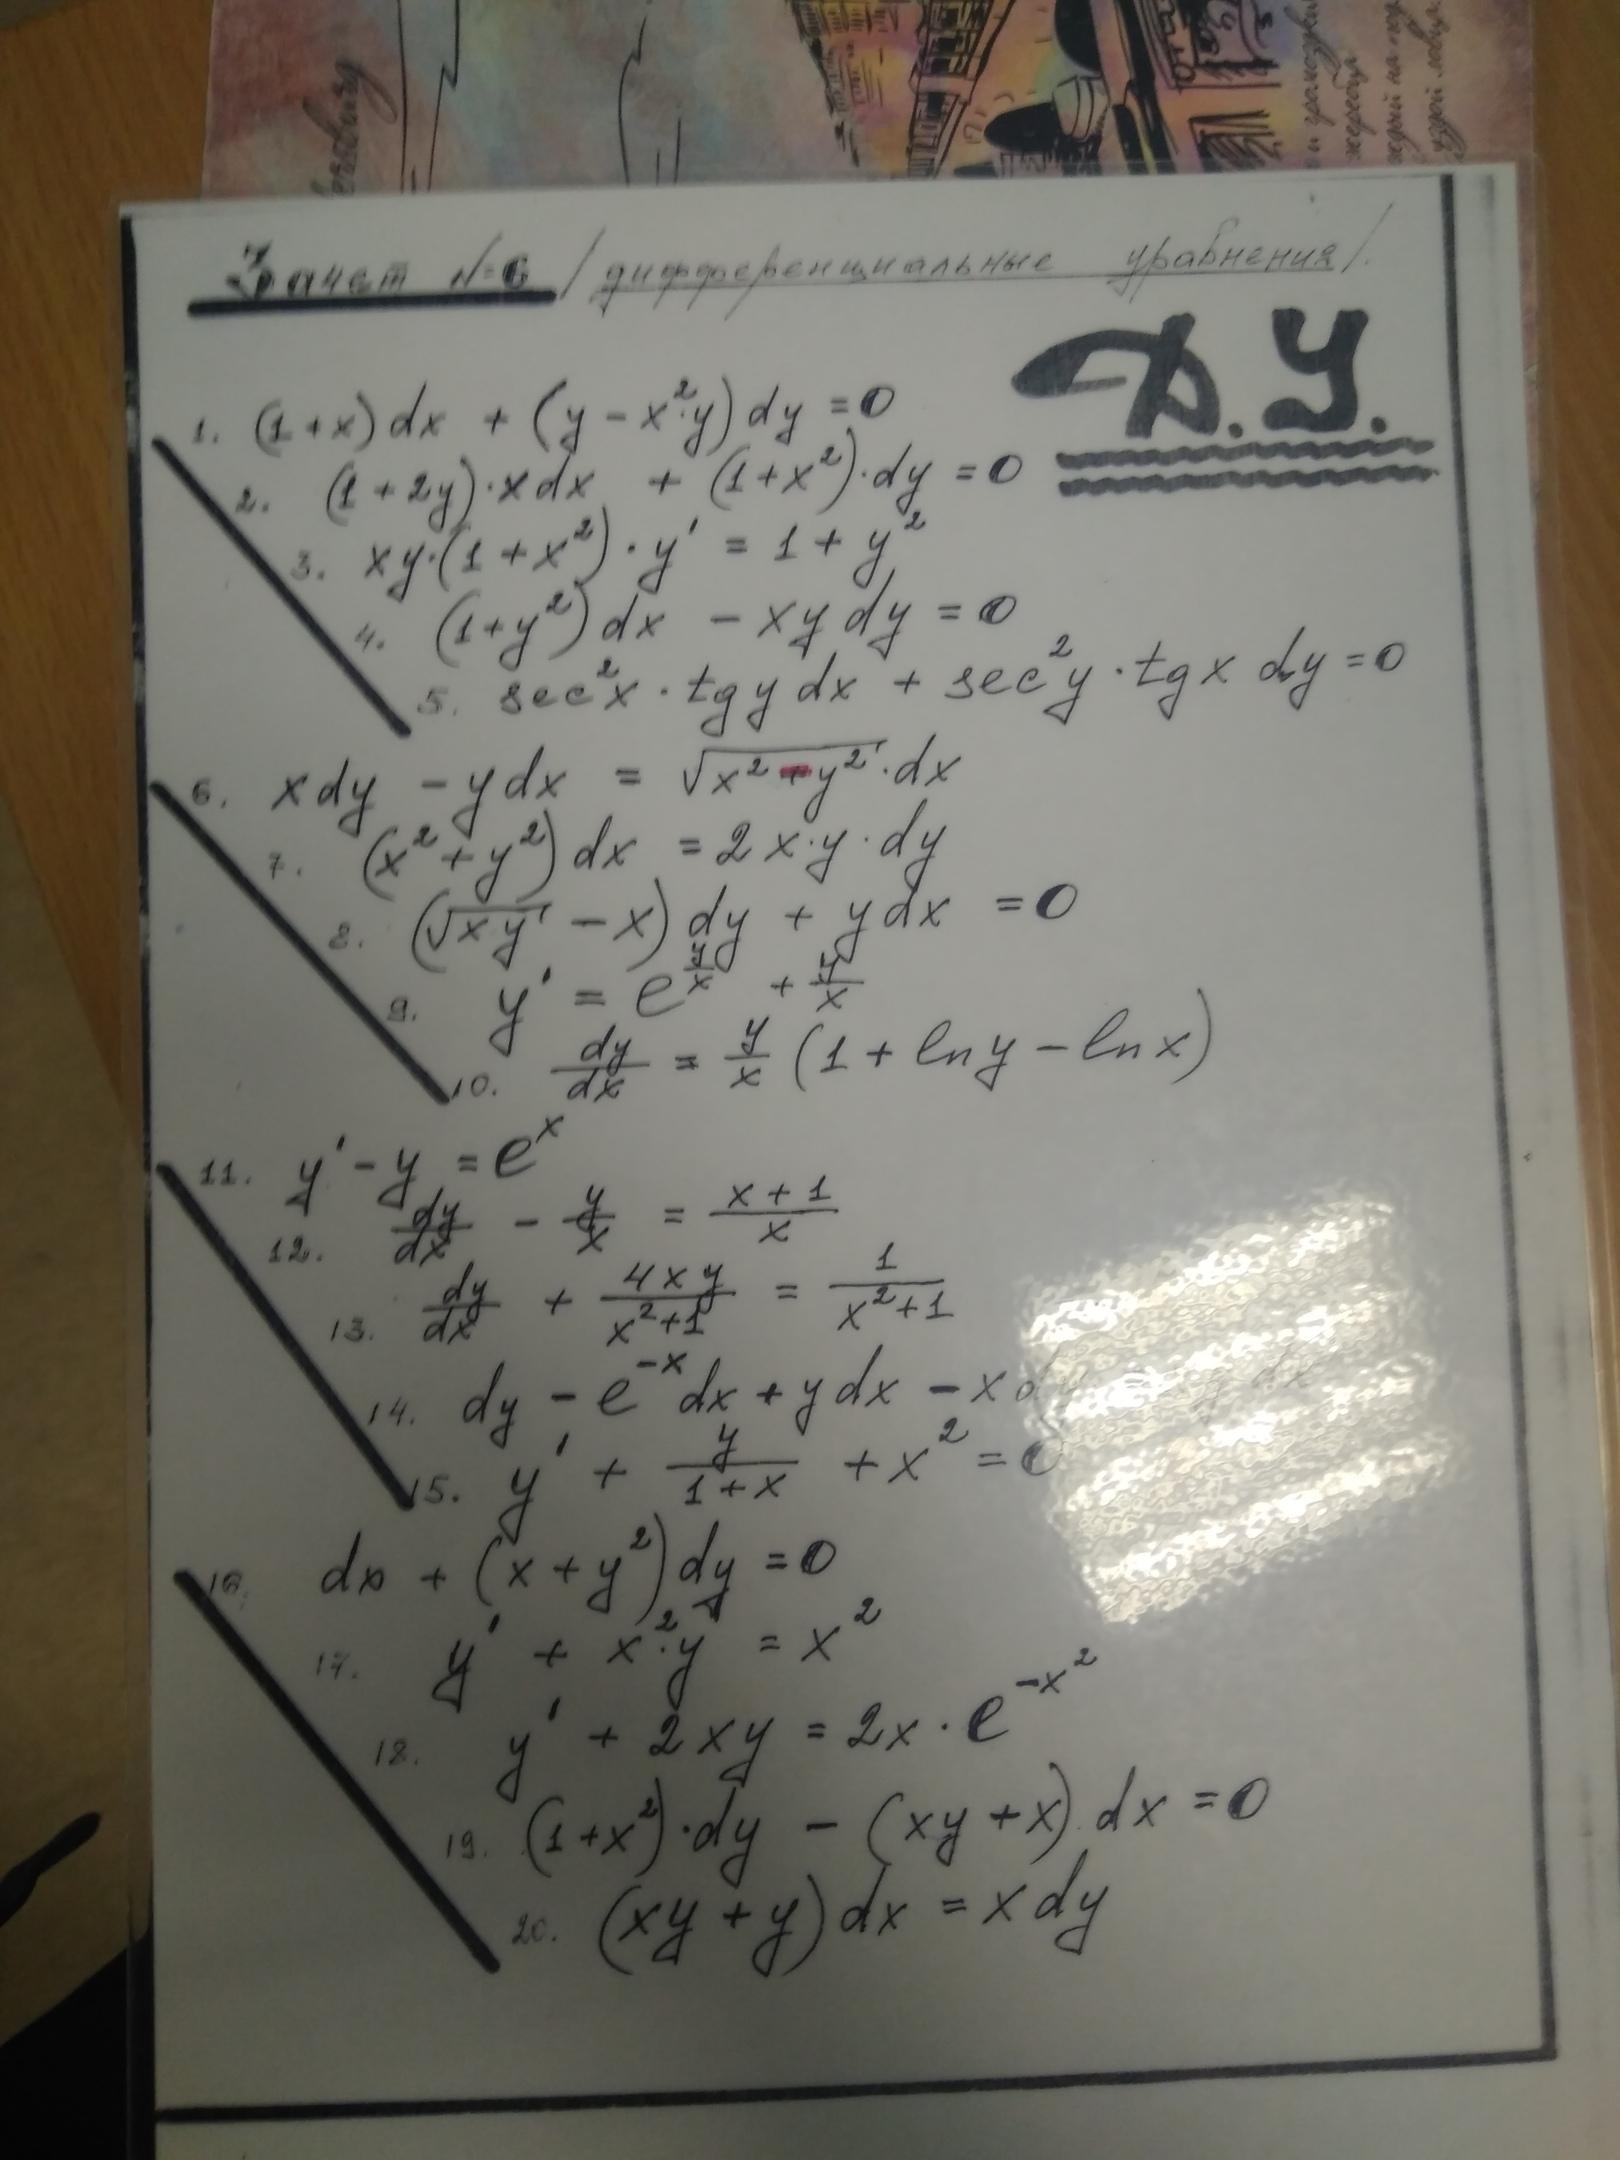 Зачет №6 /дифференциальные уравнения/.
Д.У.
1. (1+x)dx + (y-x²·y)dy=0
2. (1+2y)·xdx + (1+x²)·dy=0
3. xy·(1+x²)·y' = 1+y²
4. (1+y²)dx - xydy=0
5. sec²x·tgydx + sec²y·tgxdy=0
6. xdy - ydx = √(x²-y²)·dx
7. (x²+y²)dx = 2x·y·dy
8. (√(xy) - x)dy + ydx = 0
9. y' = e^(y/x) + y/x
10. dy/dx = y/x (1 + lny - lnx)
11. y' - y = e^x
12. dy/dx - y/x = (x+1)/x
13. dy/dx + 4xy/(x²+1) = 1/(x²+1)
14. dy - e^(-x)dx + ydx - xdy = xydx
15. y' + y/(1+x) + x² = 0
16. dx + (x+y²)dy = 0
17. y' + x²·y = x²
18. y' + 2xy = 2x·e^(-x²)
19. (1+x²)·dy - (xy+x)dx = 0
20. (xy+y)dx = xdy